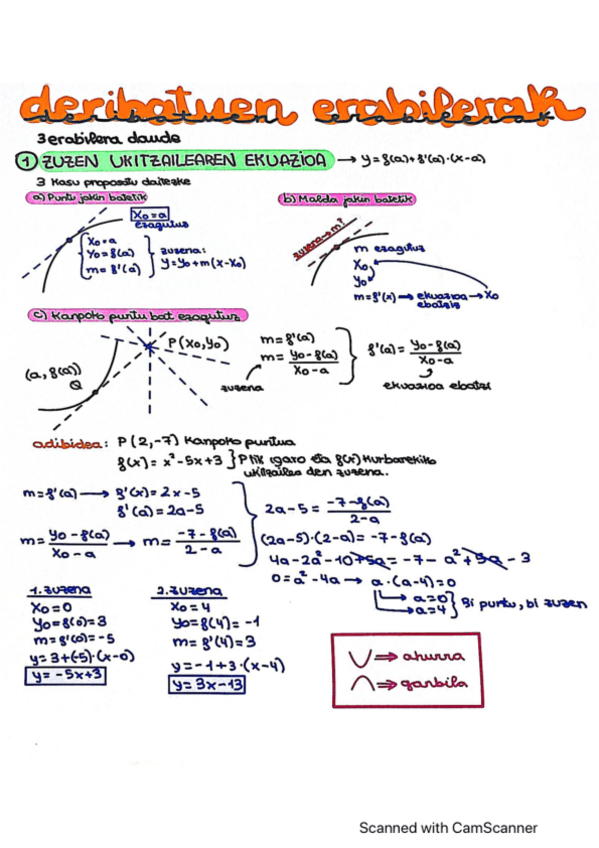 deribatuen erabilerak
3 erabilera daude
1 ZUZEN UKITZAILEAREN EKUAZIOA → y=f(a)+f'(a)·(x-a)
3 kasu proposatu daitezke
a) Puntu jakin batetik
b) Malda jakin batetik
X₀=a
ezagutuz
X₀=a
Y₀=f(a)
m=f'(a)
zuzena:
y=y₀+m(x-x₀)
zuzena→m?
m ezagutuz
X₀
Y₀
m=f'(x) → ekuazioa → X₀
ebatziz
c) Kanpoko puntu bat ezagutuz
P(X₀,Y₀)
(a, f(a))
Q
m=f'(a)
m= y₀-f(a) / x₀-a
zuzena
f'(a)= y₀-f(a) / x₀-a
ekuazioa ebatzi
adibidea: P(2,-7) kanpoko puntua
f(x)= x²-5x+3 } P tik igaro eta f(x) kurbarekiko
ukitzailea den zuzena.
m=f'(a) → f'(x)=2x-5
f'(a)=2a-5
m= y₀-f(a) / x₀-a → m= -7-f(a) / 2-a
2a-5= -7-f(a) / 2-a
(2a-5)·(2-a)=-7-f(a)
4a-2a²-10+5a=-7-a²+5a-3
0=a²-4a → a·(a-4)=0
a=0
a=4 } Bi puntu, bi zuzen
1. zuzena
X₀=0
Y₀=f(0)=3
m=f'(0)=-5
y=3+(-5)·(x-0)
y=-5x+3
2. zuzena
X₀=4
Y₀=f(4)=-1
m=f'(4)=3
y=-1+3·(x-4)
y=3x-13
∪ ⇒ ahurra
∩ ⇒ ganbila
Scanned with CamScanner